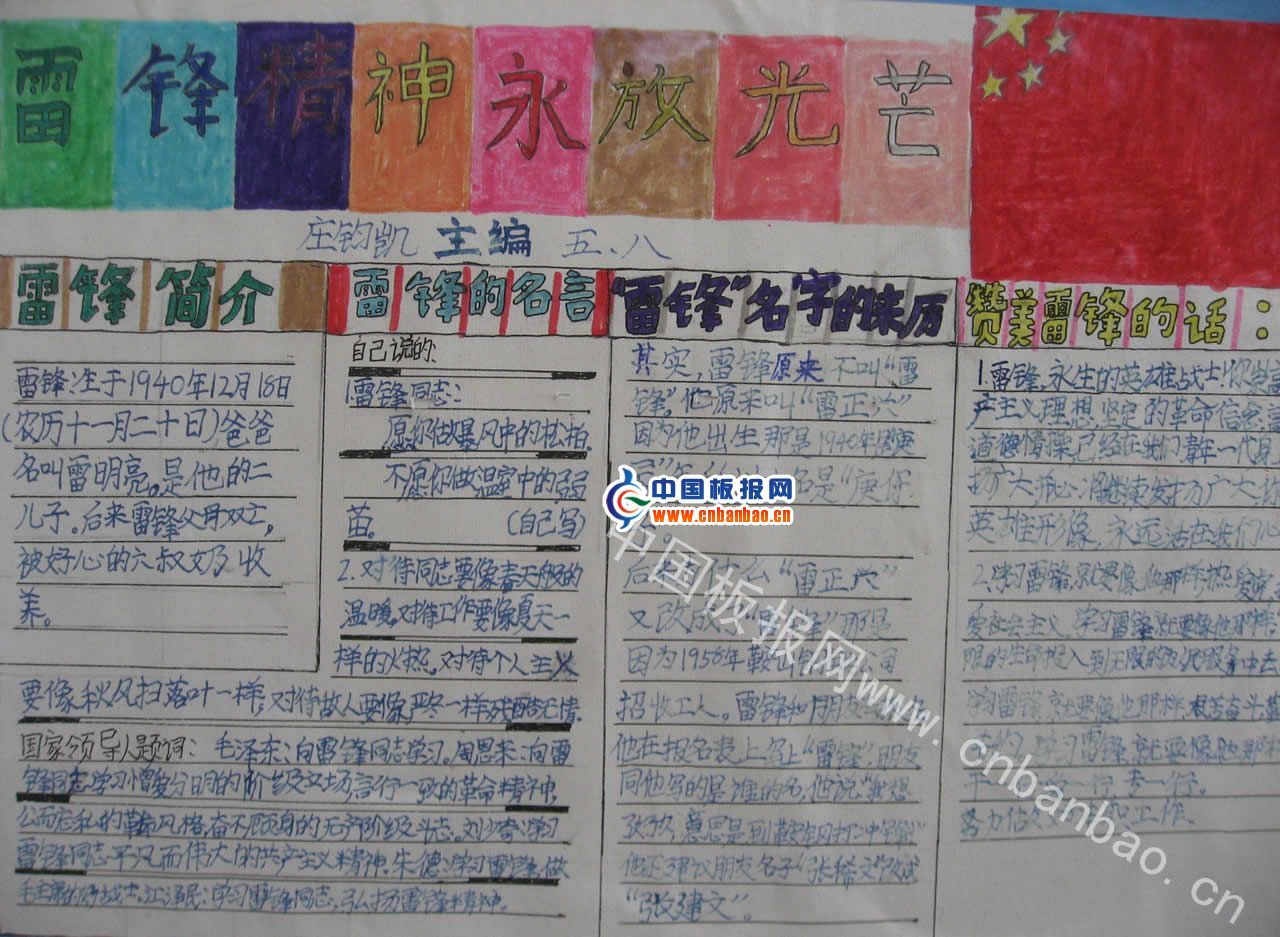 雷锋精神永放光芒
庄钧凯 主编 五、八
雷锋简介
雷锋:生于1940年12月18日
(农历十一月二十日)爸爸
名叫雷明亮。是他的二
儿子。后来雷锋父母双亡,
被好心的六叔奶收
养。
雷锋的名言
自己说的:
1.雷锋同志:
愿你做暴风中的松柏
不愿你做温室中的弱
苗。 (自己写)
2.对待同志要像春天般的
温暖,对待工作要像夏天一
样的火热,对待个人主义
要像秋风扫落叶一样,对待敌人要像严冬一样残酷无情.
国家领导人题词: 毛泽东:向雷锋同志学习。周恩来:向雷
锋同志学习憎爱分明的阶级立场,言行一致的革命精神,
公而忘私的革命风格,奋不顾身的无产阶级斗志。刘少奇:学习
雷锋同志平凡而伟大的共产主义精神.朱德:学习雷锋,做
毛主席的好战士.江泽民:学习雷锋同志,弘扬雷锋精神。
"雷锋"名字的来历
其实,雷锋原来不叫"雷
锋",他原来叫"雷正兴"
因为他出生那是1940年
名是"庚伢
后 什么"雷正兴"
又改成了 那是
因为1958年鞍 公司
招收工人。雷锋和朋友
他在报名表上写上"雷锋",朋友
同他写的是谁的名,他说"我想
他还建议朋友名字"张稀文"改成
"张建文"。
赞美雷锋的话:
1.雷锋,永生的英雄战士!你
产主义理想,坚定的革命信念,
道德情操,已经在我们青年一代
英雄形像,永远活在我们心
2.学习雷锋,就要像他那样热爱
爱社会主义,学习雷锋就要像他那样
限的生命投入到无限的 服务中去
学雷锋就要像他那样,艰苦奋斗
学习雷锋就要像他那样
干一行 专一行。
努力 工作。
中国板报网
www.cnbanbao.cn
中国板报网www.cnbanbao.cn